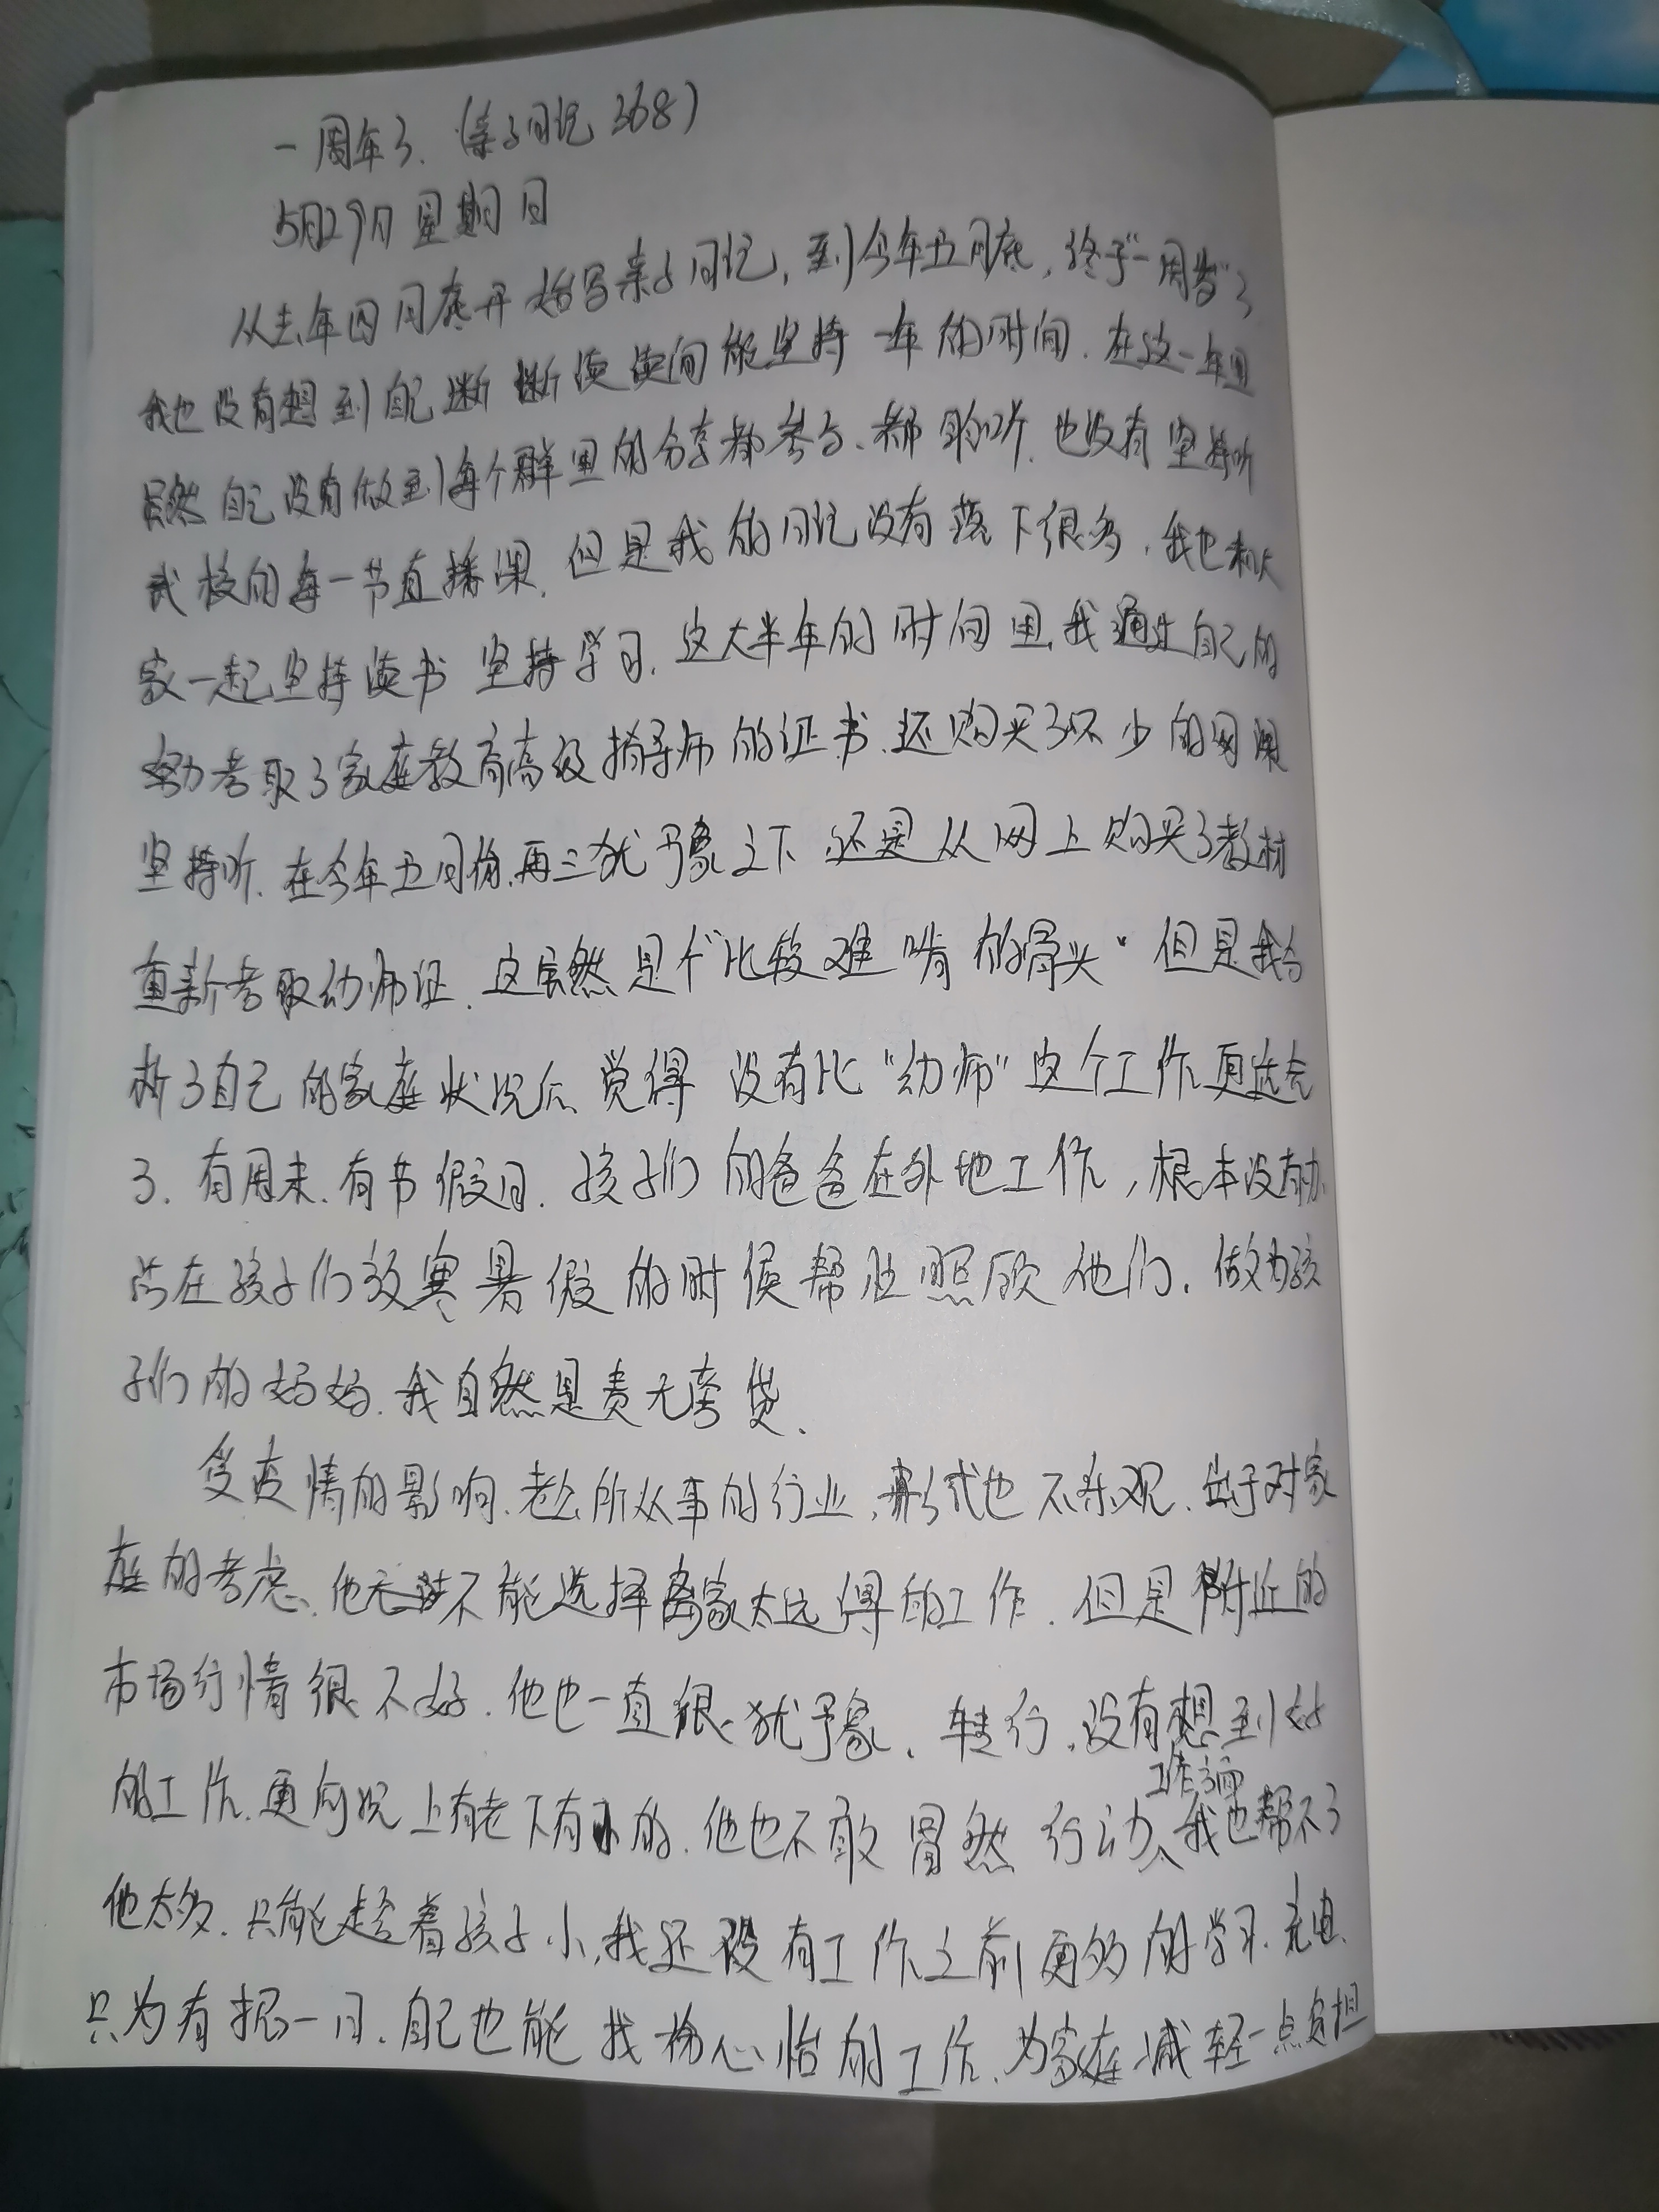 一周年了.（亲子日记 368）
5月29日 星期日
从去年四月底开始写亲子日记，到今年五月底，终于“一周岁”了
我也没有想到自己断断续续间能坚持一年的时间.在这一年里
虽然自己没有做到每个群里的分享都参与、都聆听.也没有坚持听
武校的每一节直播课.但是我的日记没有落下很多，我也和大
家一起坚持读书 坚持学习.这大半年的时间里,我通过自己的
努力考取了家庭教育高级指导师的证书.还购买了不少的网课
坚持听.在今年五月份,再三犹豫之下,还是从网上购买了教材
重新考取幼师证.这虽然是个“比较难啃的骨头” 但是我分
析了自己的家庭状况后、觉得 没有比“幼师”这个工作更适合
了.有周末.有节假日.孩子们的爸爸在外地工作，根本没有办
法在孩子们放寒暑假的时候帮忙照顾他们.做为孩
子们的妈妈.我自然是责无旁贷.
受疫情的影响.老公所从事的行业,形式也不乐观.出于对家
庭的考虑、他无法不能选择离家太远得的工作.但是附近的
市场行情很不好.他也一直很犹豫、转行,没有想到好
的工作.更何况上有老下有小的.他也不敢冒然行动、工作方面我也帮不了
他太多.只能趁着孩子小,我还没有工作之前更多的学习.充电.
只为有把一日.自己也能找份心怡的工作.为家庭减轻一点负担